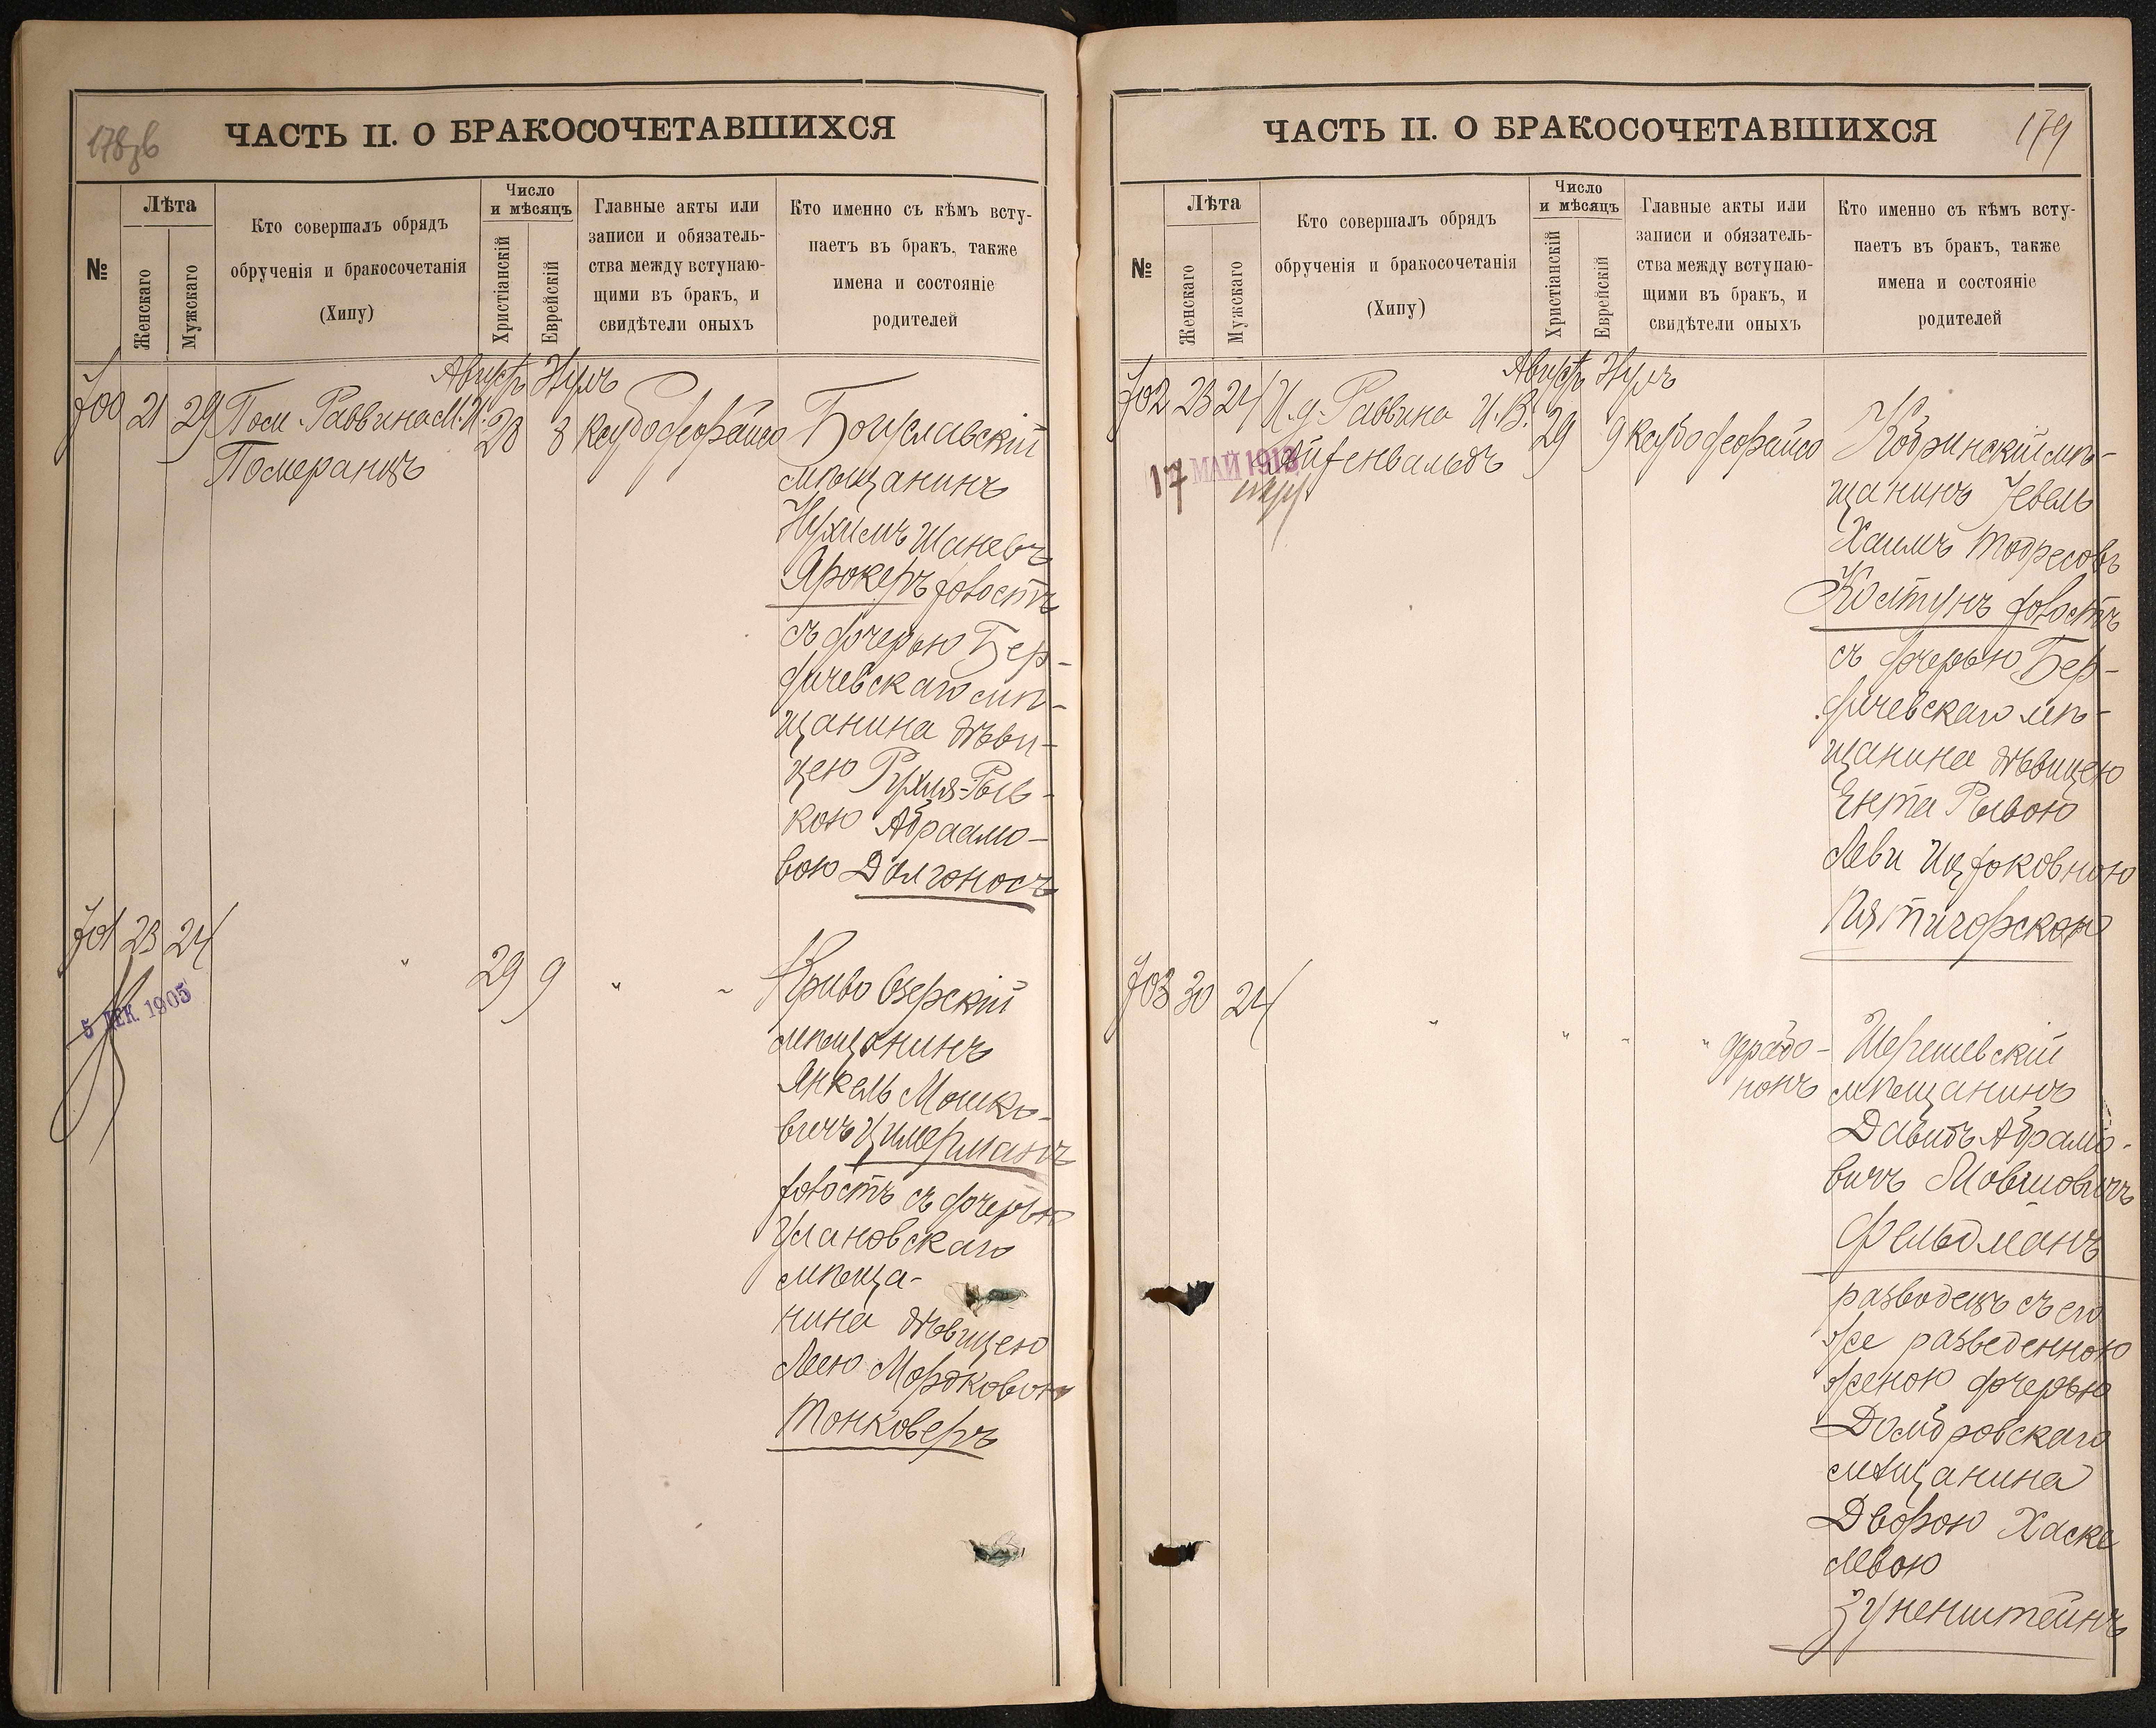 178об
ЧАСТЬ II. О БРАКОСОЧЕТАВШИХСЯ
№
Лѣта
Женскаго
Мужскаго
Кто совершалъ обрядъ
обрученія и бракосочетанія
(Хипу)
Число
и мѣсяцъ
Христіанскій
Еврейскій
Главные акты или
записи и обязатель-
ства между вступаю-
щими въ бракъ, и
свидѣтели оныхъ
Кто именно съ кѣмъ всту-
паетъ въ бракъ, также
имена и состояніе
родителей
Август Нулъ
700 21 29 Пом. Раввина М. И. 28 8
Померанцъ
Богуславскій
мѣщанинъ
Нухимъ Шаневъ
Ярокеръ холостъ
съ дочерью Бер-
дичевскаго мѣ-
щанина дѣви-
цею Рухля-Рыв-
кою Абраамо-
вою Долгоносъ
701 23 24 " 29 9 " "
5 ДЕК. 1905
Криво Озерскій
мѣщанинъ
Янкель Мошко-
вичъ Цимерманъ
холостъ съ дочерью
Улановскаго
мѣща-
нина дѣвицею
Леею Мордковою
Тонковеръ
179
ЧАСТЬ II. О БРАКОСОЧЕТАВШИХСЯ
№
Лѣта
Женскаго
Мужскаго
Кто совершалъ обрядъ
обрученія и бракосочетанія
(Хипу)
Число
и мѣсяцъ
Христіанскій
Еврейскій
Главные акты или
записи и обязатель-
ства между вступаю-
щими въ бракъ, и
свидѣтели оныхъ
Кто именно съ кѣмъ всту-
паетъ въ бракъ, также
имена и состояніе
родителей
Август Нулъ
702 23 24 И. д. Раввина И. В. 29 9
17 МАЙ 1913
Кобринскій мѣ-
щанинъ Гевель
Хаимъ Тодресовъ
Костунъ холостъ
съ дочерью Бер-
дичевскаго мѣ-
щанина дѣвицею
Ента Рывою
Леви Ицхоковною
Пятигорскою
703 30 24 " " " "
Шерешевскій
мѣщанинъ
Давидъ Абрамо-
вичъ Мовшовичъ
Фельдманъ
разводецъ съ его
же разведенною
женою дочерью
Домбровскаго
мѣщанина
Дворою Хаске
левою
Зуненштейнъ